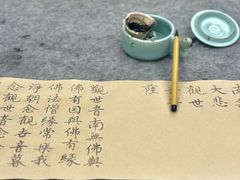 大悲
觀世
薩
觀世音南無佛與
佛有因與佛有緣
佛法僧緣常樂我
淨朝念觀世音暮
念觀世音念